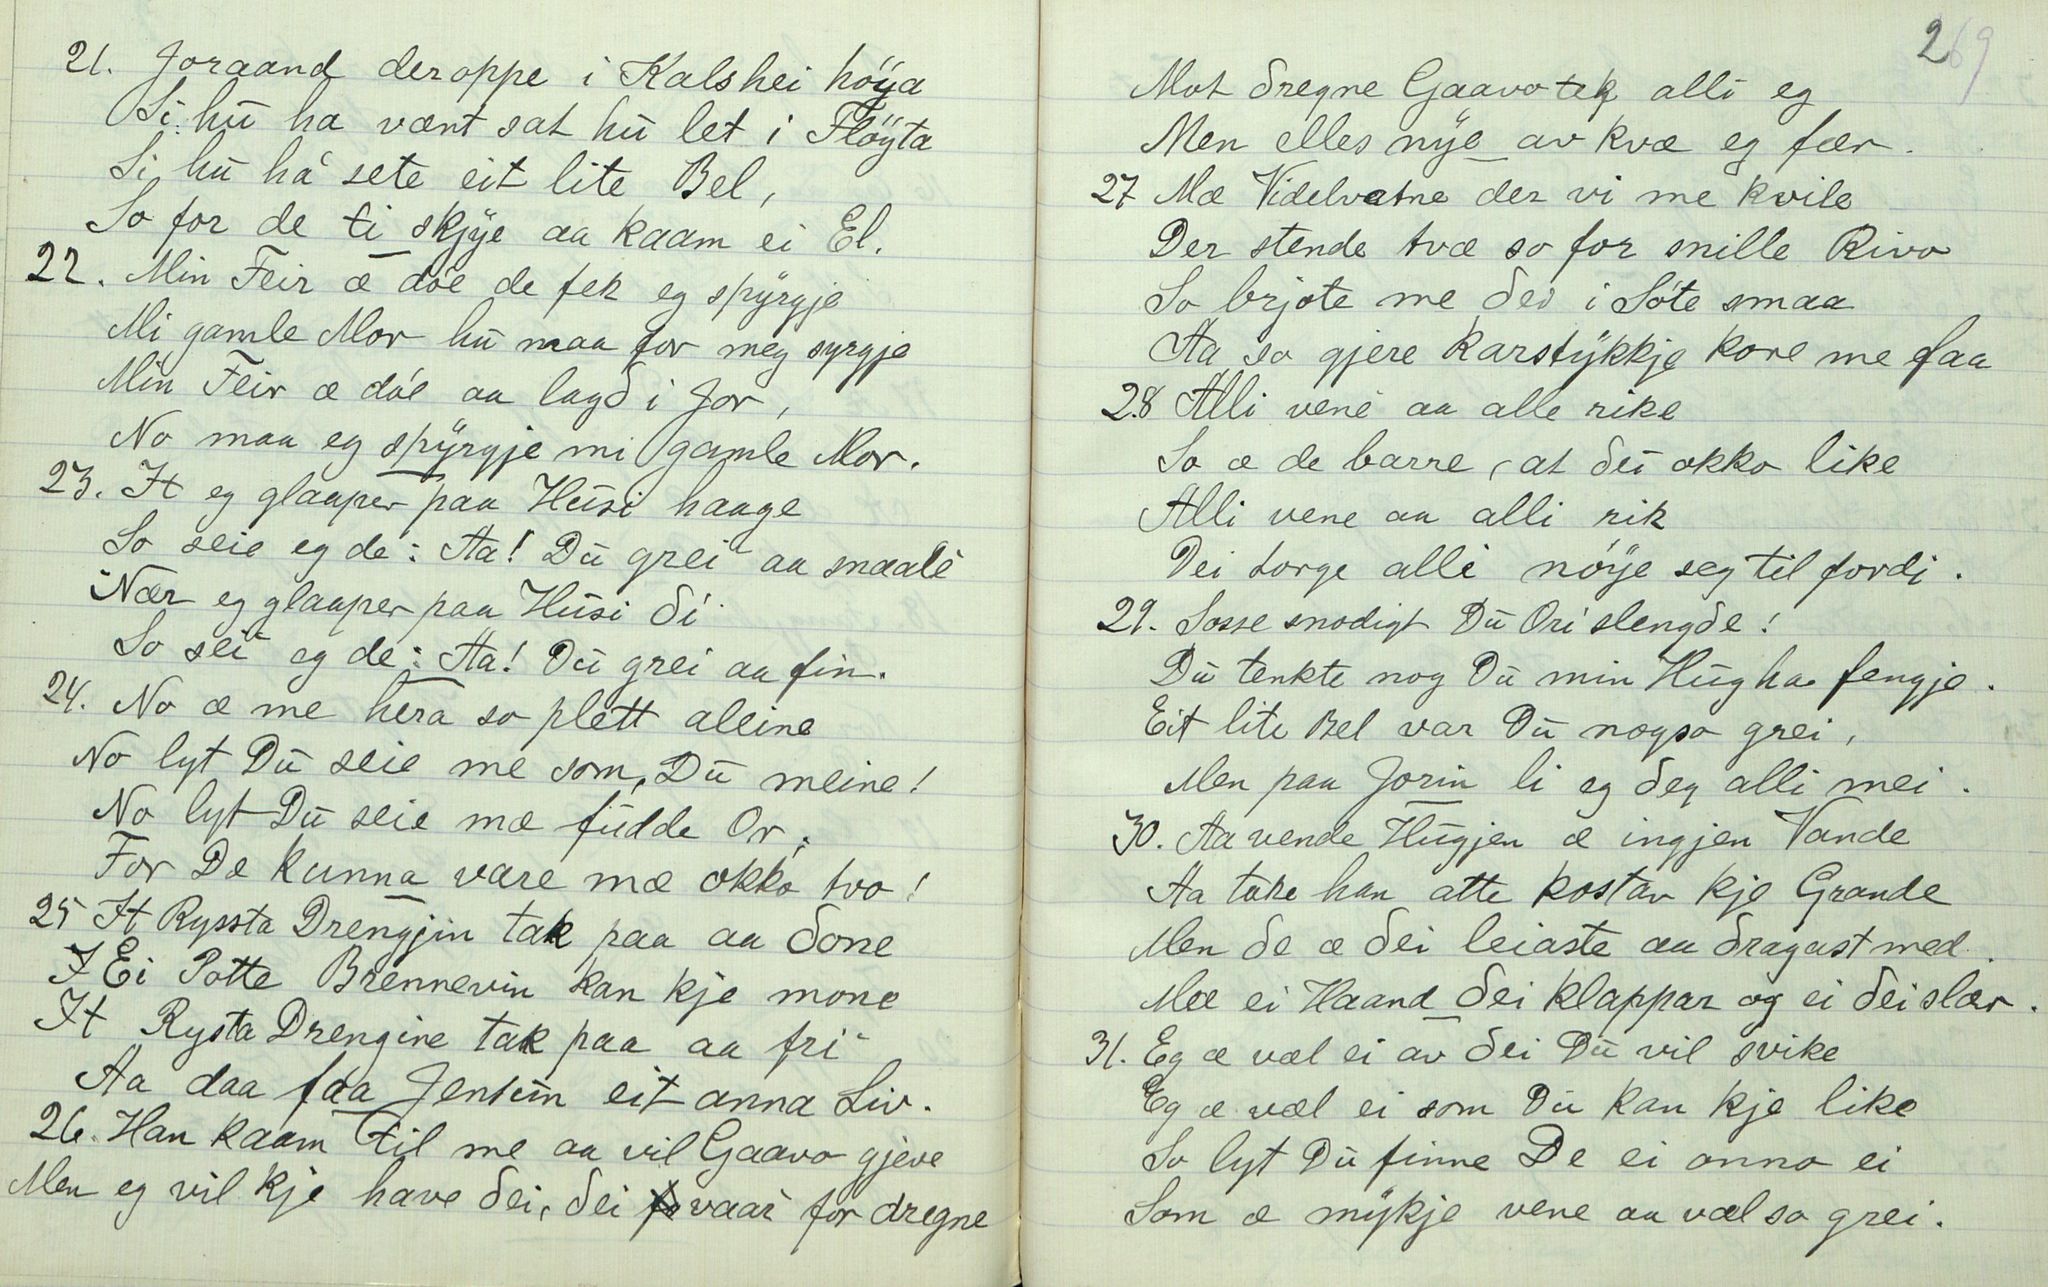 21. Joraand deroppe i Kalshei höÿa
Si hū ha vænt sat hū let i Flöÿta
Si hū há sete eit lite Bel,
So for de ti skjÿe aa kaam ei El.
22. Min Feir æ dóe de fek eg spÿrgje
Mi gamle Mor hū maa for meg syrgje
Min Feir æ dóe aa lagδ i Jor,
No maa eg spÿrgje mi gamle Mor.
23. It eg glaaper paa Hūsi haage
So seie eg de: Aa! Dū grei aa snaale
Nær eg glaaper paa Hūsi δi
So sei eg de: Aa! Dū grei aa fin.
24. No æ me hera so plett aleine
No lyt Dū seie me som Dū meine!
No lyt Dū seie mæ fūdde Or,
For De kunna være mæ okko tvo!
25 It Ryssta Drengjin tak paa aa δone
I Ei Potte Brennevin kan kje mone
It Rysta Drengine tak paa aa fri
Aa daa faa Jentūn eit anna Liv.
26. Han kaam til me aa vil Gaavo gjeve
Men eg vil kje have δei, δei vaar for dregne
269
Mot δregne Gaavo tek alli eg
Men elles nÿe av kvæ eg fær.
27 Mæ Videlvatne der vi me kvile
Der stende tvæ so for snille Rivo
So brjote me δei i Sóte smaa
Aa so gjere Karstÿkkje kore me faa
28 Alli vene aa alle rike
So æ de barre, at δei okko like
Alli vene aa alli rik
Dei torge alli nöÿe seg til fordi.
29. Sosse snodigt Dū Ori slengδe!
Dū tenkte nog Dū min Hūg ha fengje.
Eit lite Bel var Dū nogso grei,
Men paa Jorin li eg δeg alli mei.
30. Aa vende Hūgjen æ ingjen Vande
Aa take han atte kostar kje Grande
Men δe æ δei leiaste aa δragast med.
Mæ ei Haand δei klappar og ei δei slær.
31. Eg æ væl ei av δei Dū vil svike
Eg æ væl ei som Dū kan kje like
So lyt Dū finne De ei onno ei
Som æ mÿkje vene aa væl so grei.